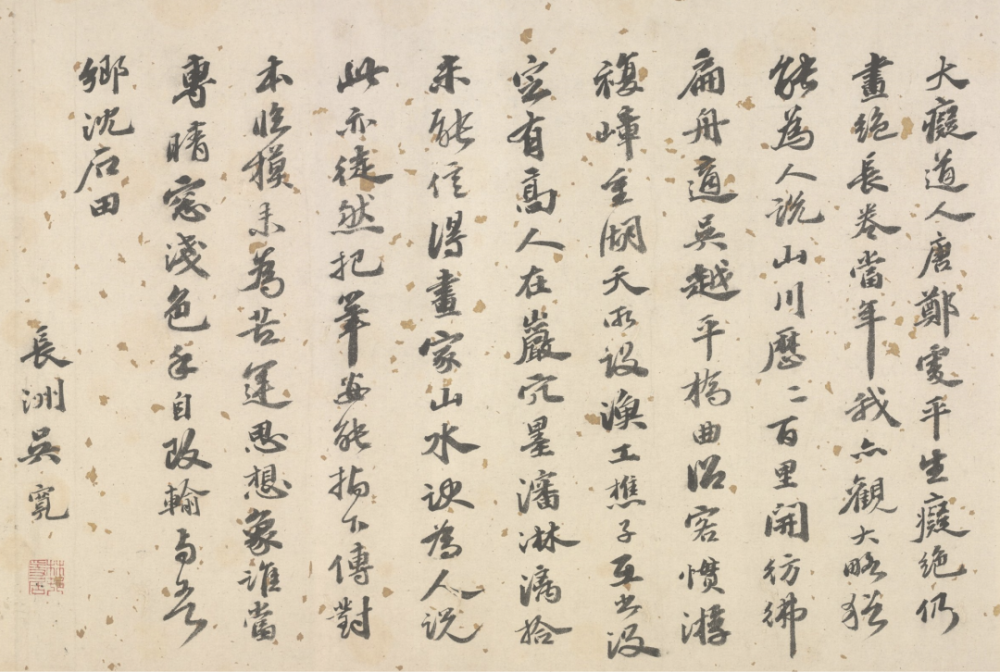 大癡道人唐鄭虔平生癡絶仍
畫絶長卷當年我亦觀大略猶
能為人說山川歷〻百里開彷彿
扁舟適吳越平橋曲沼客慣游
複嶂重湖天所設漁工樵子互出沒
定有高人在巖穴墨瀋淋漓拾
未能信得畫家山水訣為人說
此亦徒然把筆安能指下傳對
本臨模未為苦運思想象誰當
專晴窓淺色手自改輸與吾
鄉沈石田
長洲吳寬